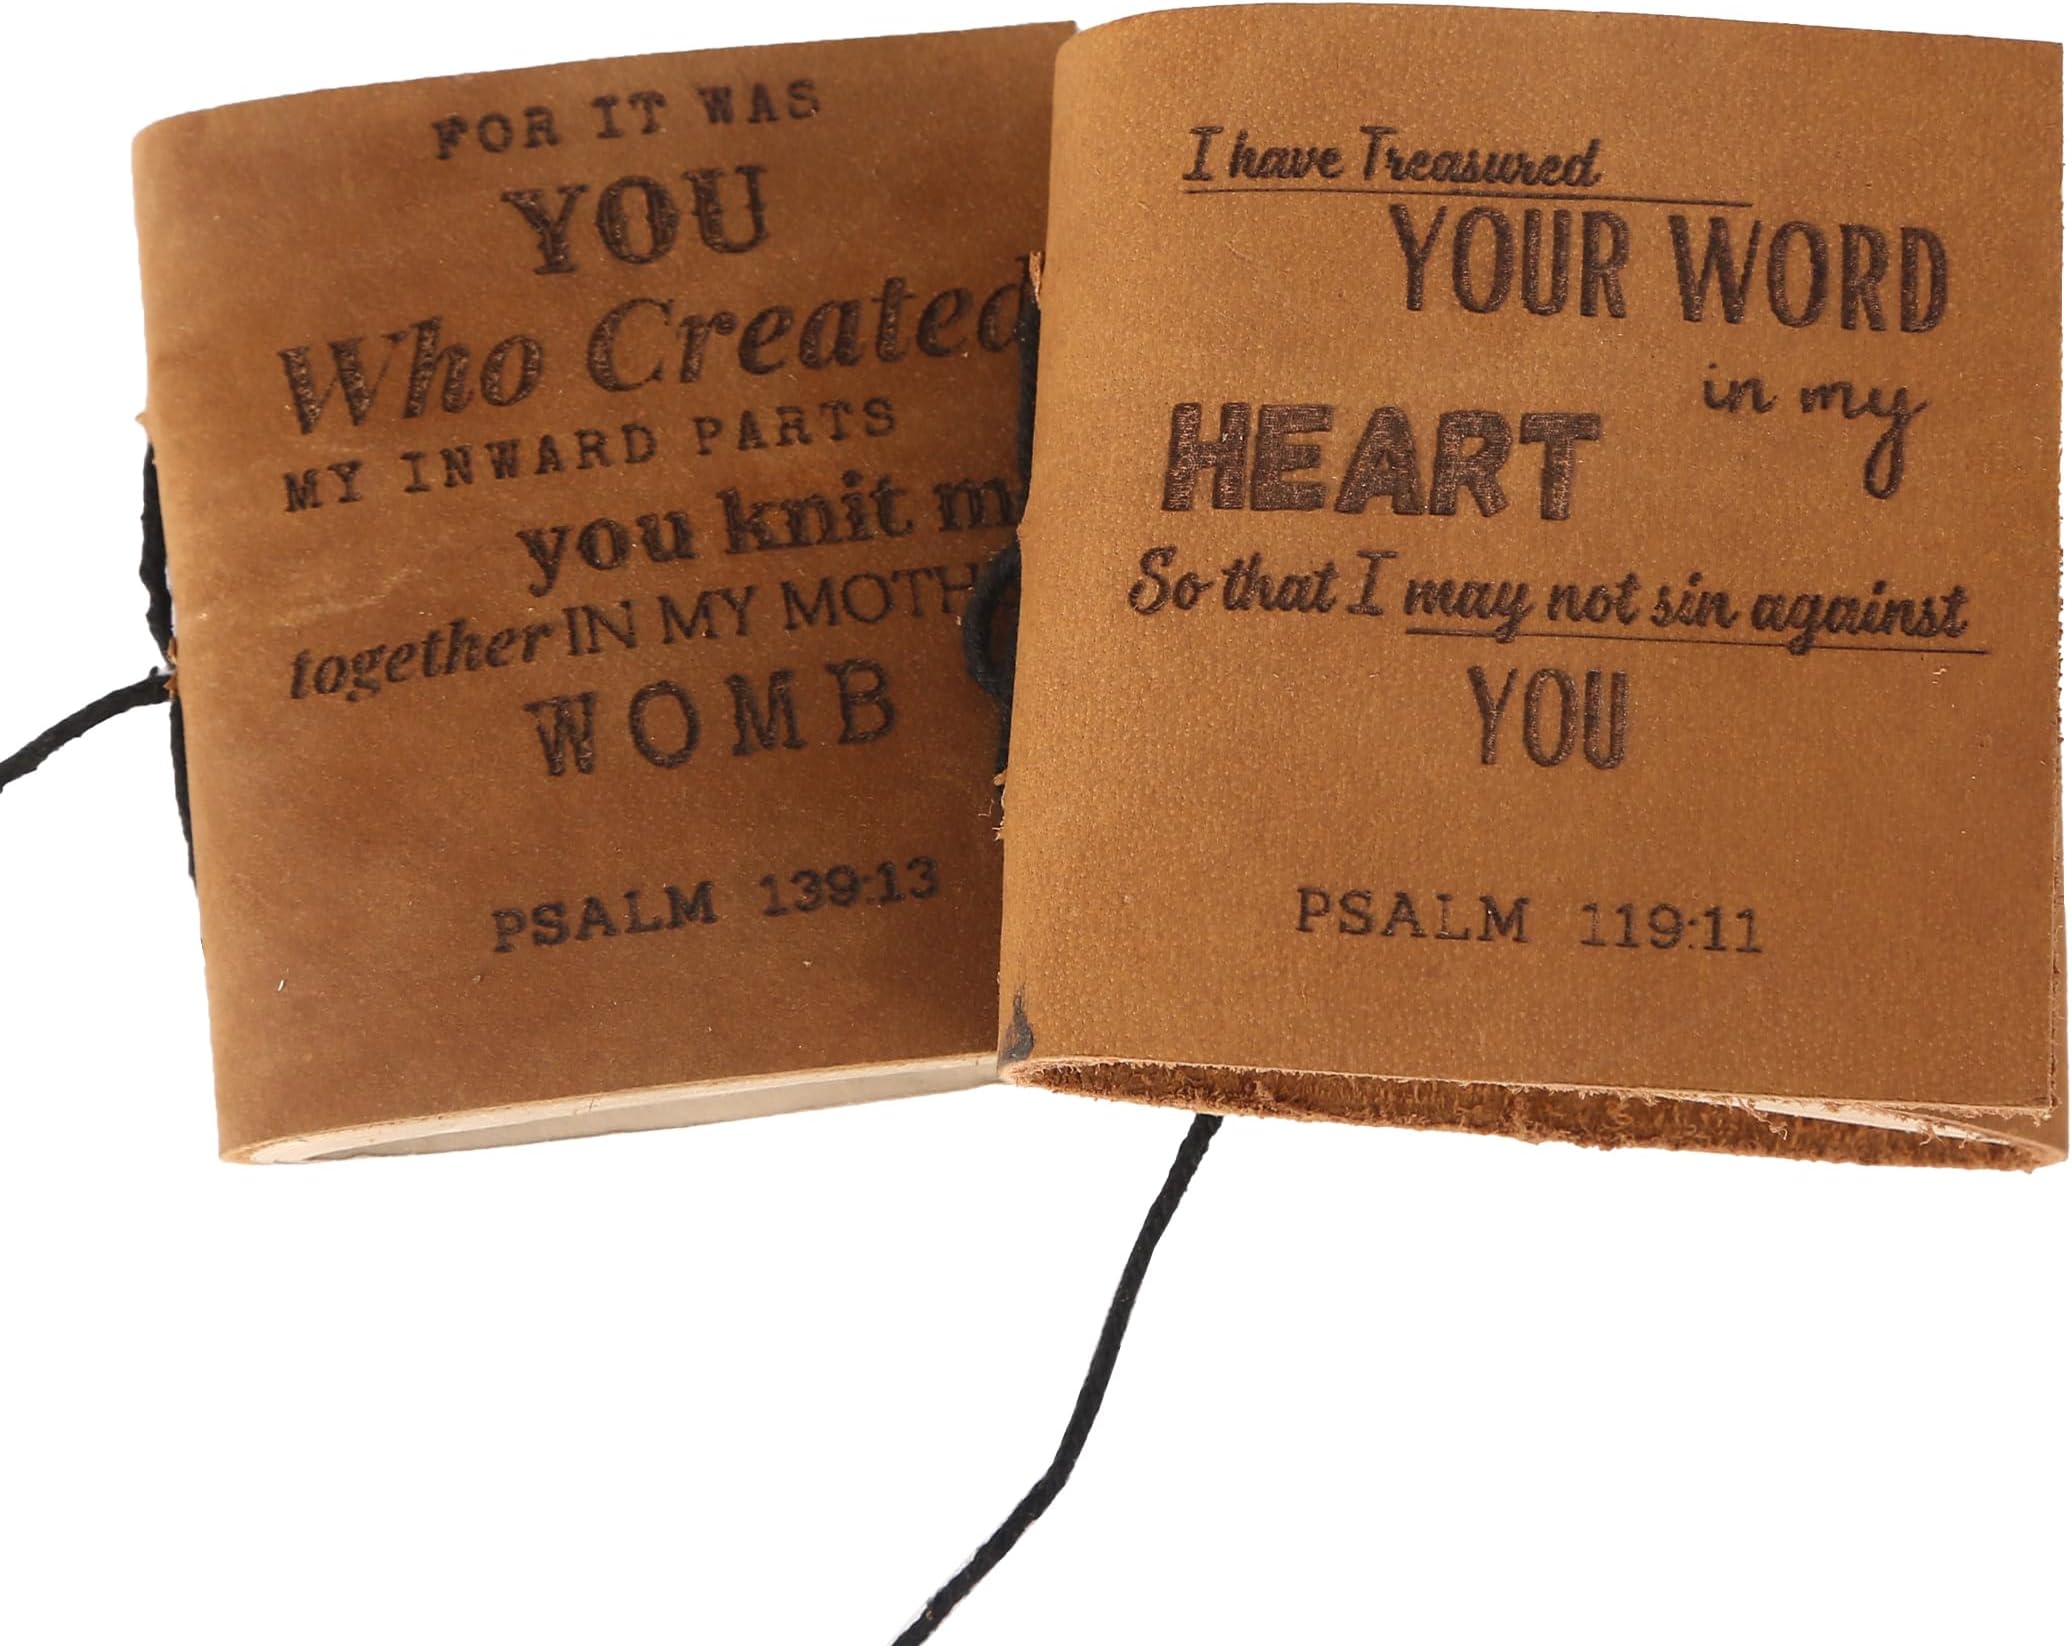 FOR IT WAS
YOU
Who Created
MY INWARD PARTS
you knit m
together IN MY MOTH
WOMB
PSALM 139:13
I have Treasured
YOUR WORD
in my
HEART
So that I may not sin against
YOU
PSALM 119:11